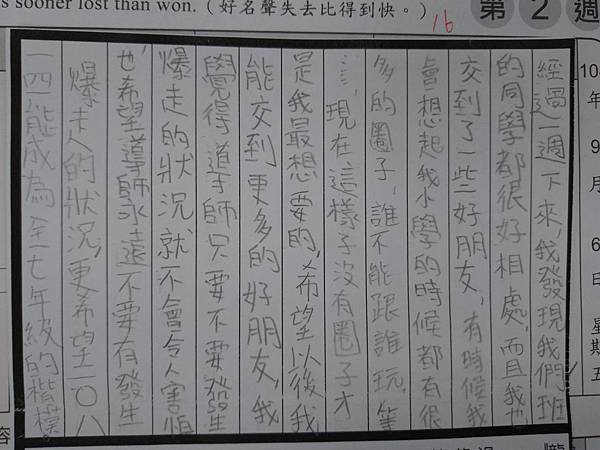 s sooner lost than won.(好名聲失去比得到快。)
16
第2週
10
年
9
月
6
日
星
期
五
經過一週下來,我發現我們班
的同學都很好相處,而且我也
交到了一些好朋友,有時候我
會想起我小學的時候都有很
多的圈子,誰不能跟誰玩等
⋯,現在這樣子沒有圈子才
是我最想要的,希望以後我
能交到更多的好朋友,我
覺得導師只要不要發生
爆走的狀況就不會令人害怕
也希望導師永遠不要有發生
爆走人的狀況,更希望一〇八
一四能成為全七年級的楷模。
容